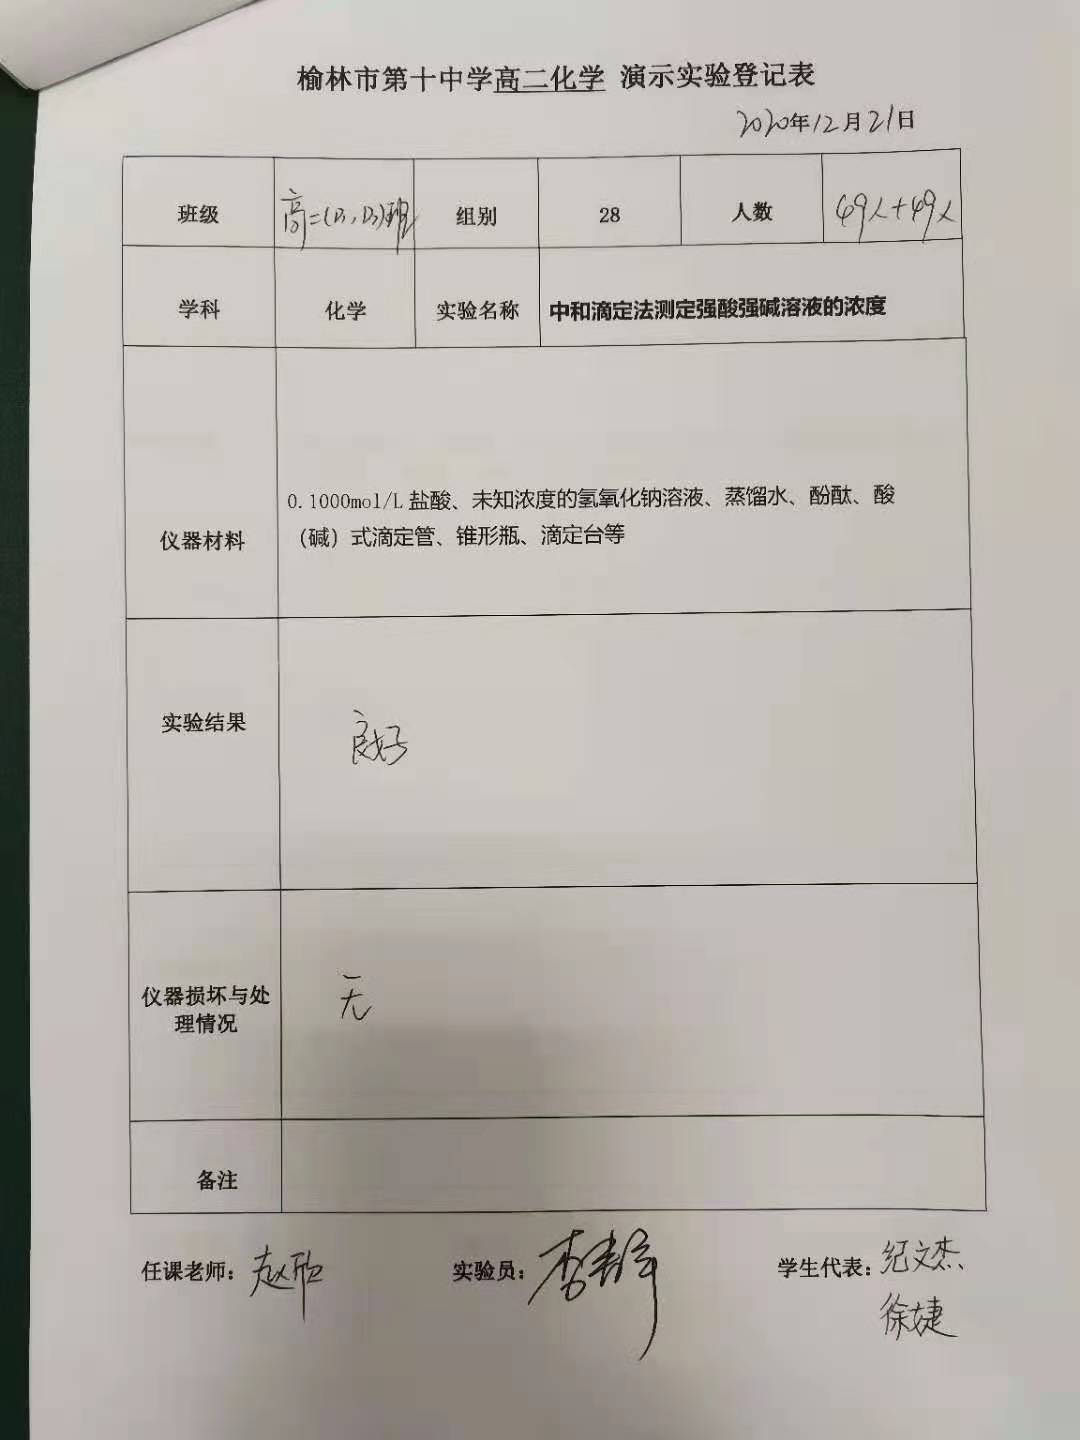 榆林市第十中学高二化学 演示实验登记表
2020年12月21日
班级 高二(D1,D2)班 组别 28 人数 49人+49人
学科 化学 实验名称 中和滴定法测定强酸强碱溶液的浓度
仪器材料
0.1000mol/L 盐酸、未知浓度的氢氧化钠溶液、蒸馏水、酚酞、酸
（碱）式滴定管、锥形瓶、滴定台等
实验结果 良好
仪器损坏与处
理情况
无
备注
任课老师：赵欣 实验员： 学生代表：纪文杰、
徐婕